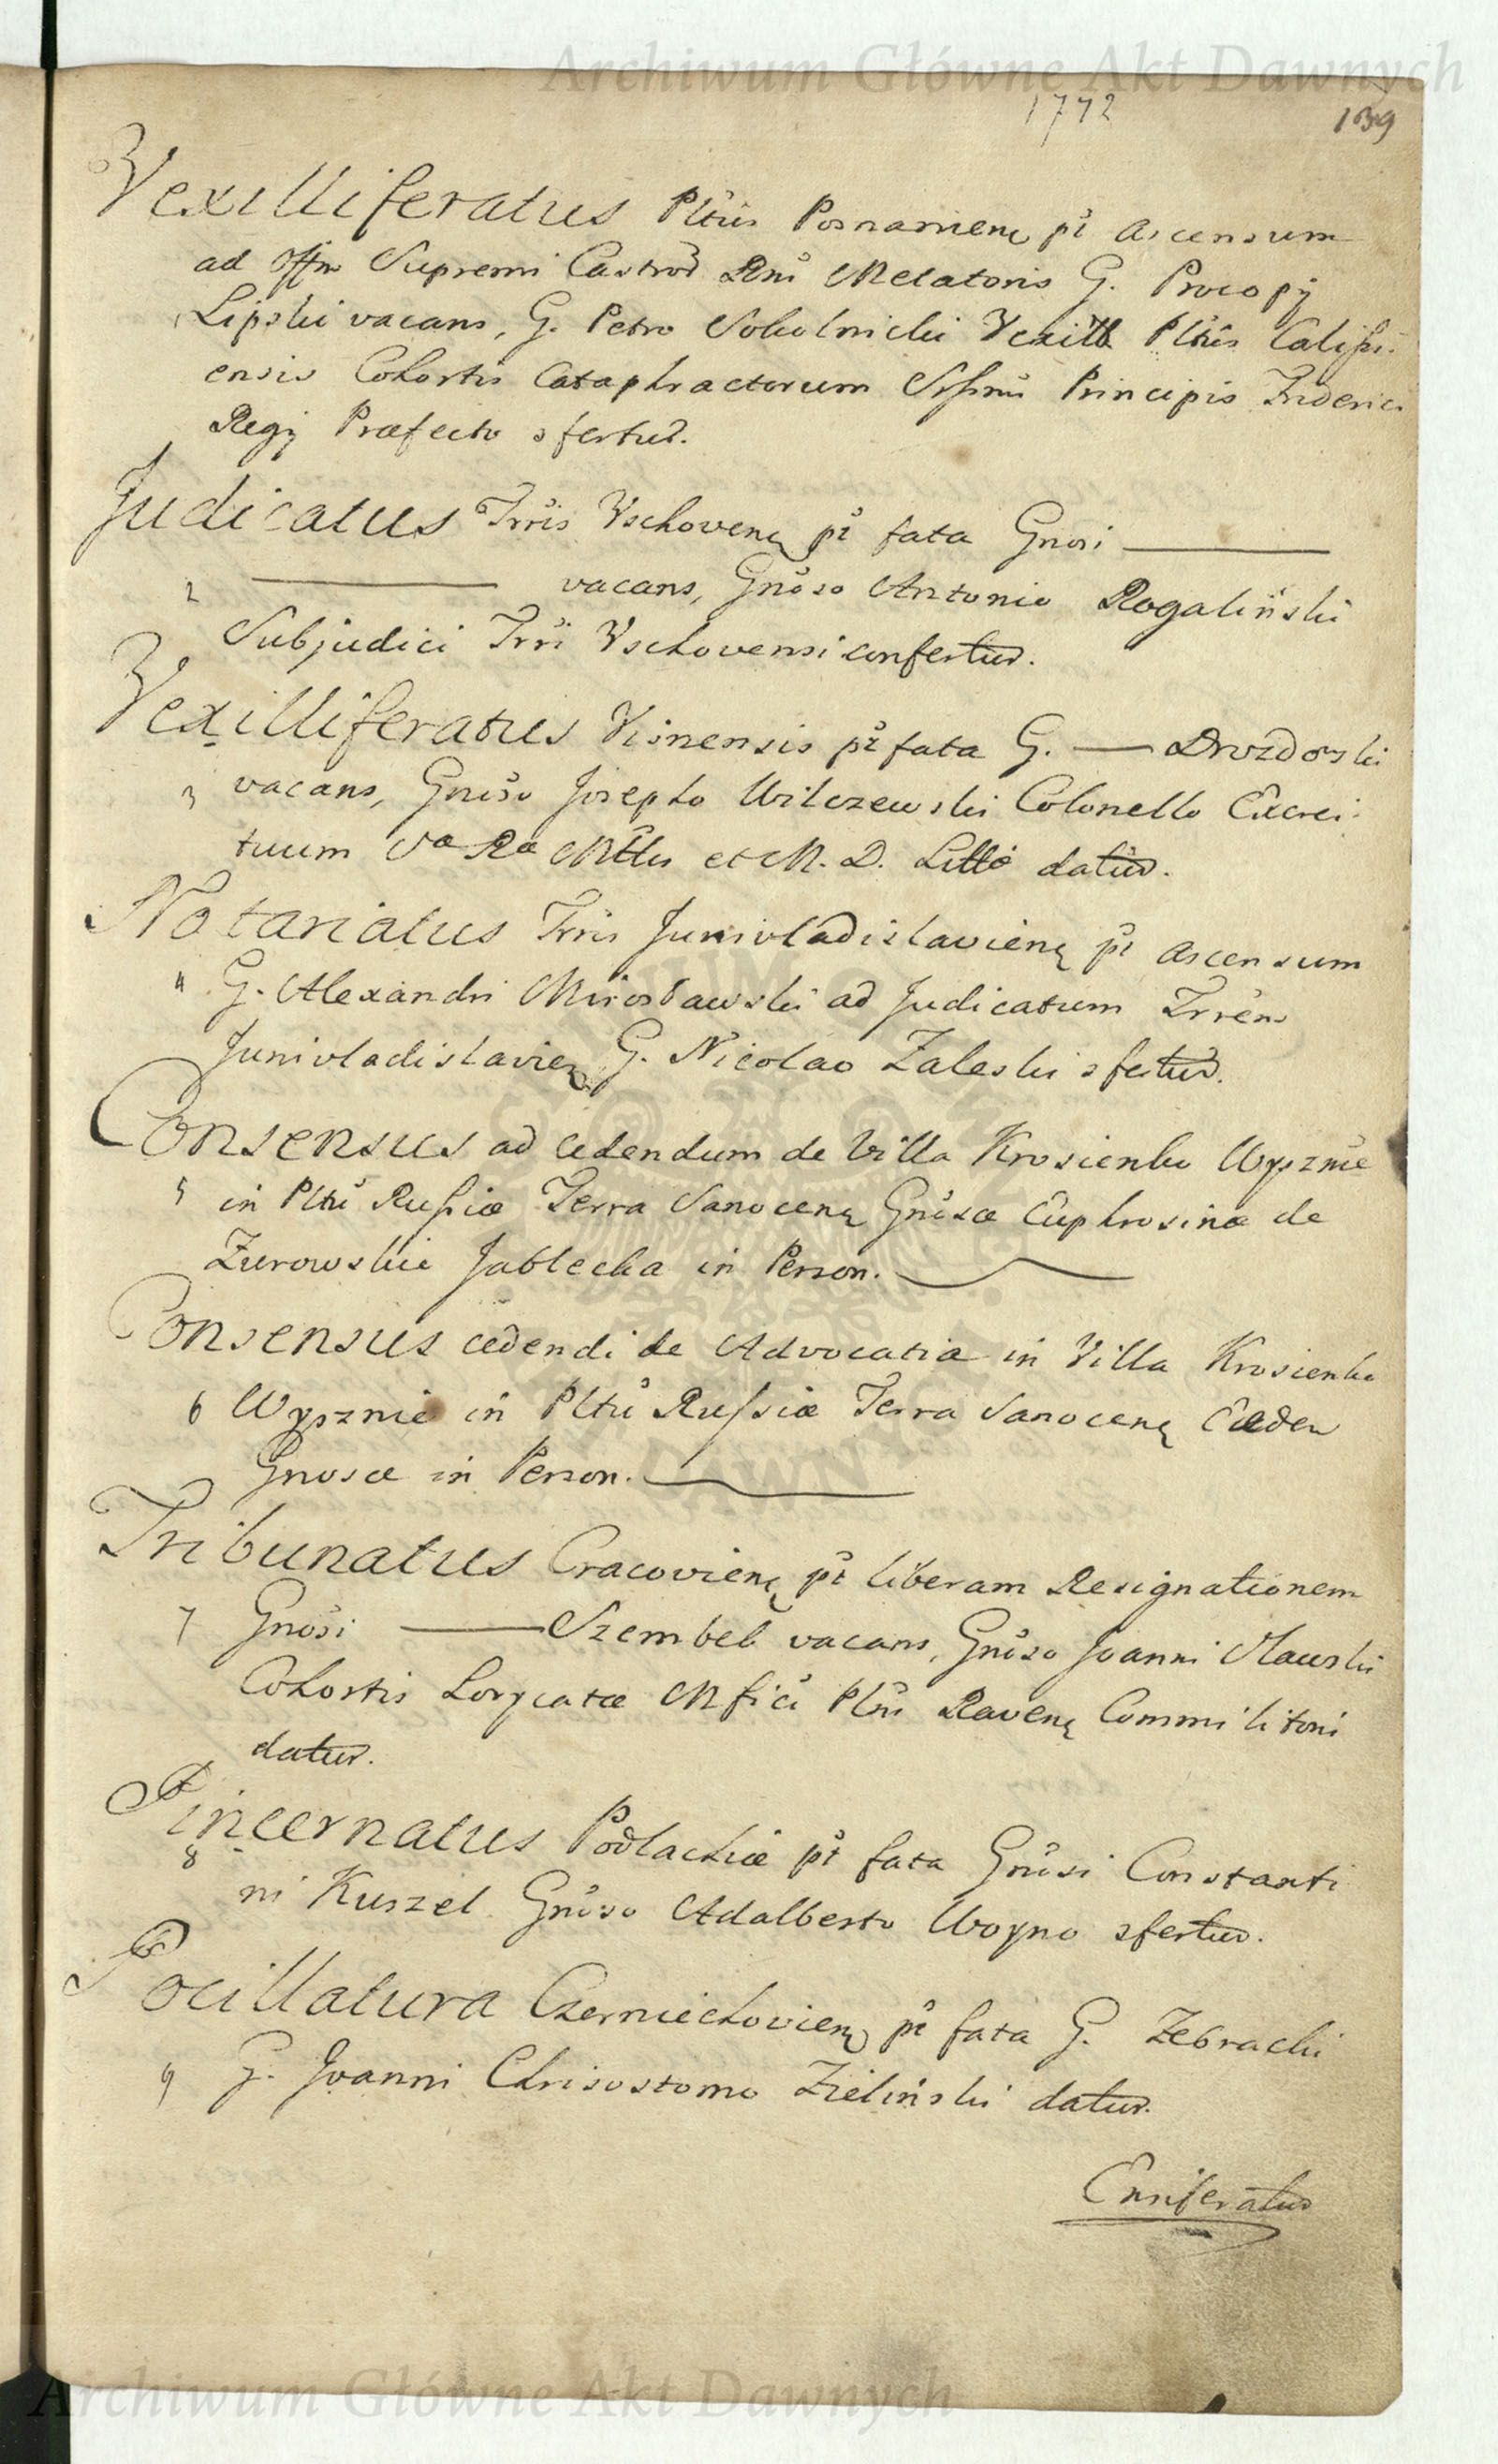 Archiwum Główne Akt Dawnych
1772
139
Vexilliferatus Pltûs Posnanien pt Ascensum
ad Offm Supremi Castror Rni Metatoris G. Procopij
Lipski vacans, G. Petro Sokolnicki Vexill Pltûs Calissi-
ensis Cohortis Cataphractorum Srssmi Principis Friderici
Regij Præfecto sfertur.
Judicatus Trris Vschoven pt fata Gnosi ———
2 ——— vacans, Gnoso Antonio Rogaliński
Subjudici Trri Vschovensi confertur.
Vexilliferatus Visnensis pt fata G. — Drozdowski
3 vacans, Gnoso Josepho Wilczewski Colonello Exerci-
tuum Sæ Ræ Mttis et M. D. Litt datur.
Notariatus Trris Junivladislavien pt Ascensum
4 G. Alexandri Mirosławski ad Judicatum Trren
Junivladislavien G. Nicolao Zaleski sfertur.
Consensus ad cedendum de Villa Krosienko Wyżnie
5 in Pltu Russiæ Terra Sanocen Gnosæ Euphrosinæ de
Zurowskie Jablecka in Person.
Consensus cedendi de Advocatia in Villa Krosienko
6 Wyżnie in Pltu Russiæ Terra Sanocen Eædem
Gnosæ in Person.
Tribunatus Cracovien pt liberam Resignationem
7 Gnosi ——— Szembek vacans, Gnoso Joanni Sławski
Cohortis Loricatæ Mfici Pltni Raven Commilitoni
datur.
Pincernatus Podlachiæ pt fata Gnosi Constanti
8
ni Kuszel Gnoso Adalberto Woyno sfertur.
Pocillatura Czerniechovien pt fata G. Zebracki
9 G. Joanni Chrisostomo Zieliński datur.
Ensiferatus
Archiwum Główne Akt Dawnych